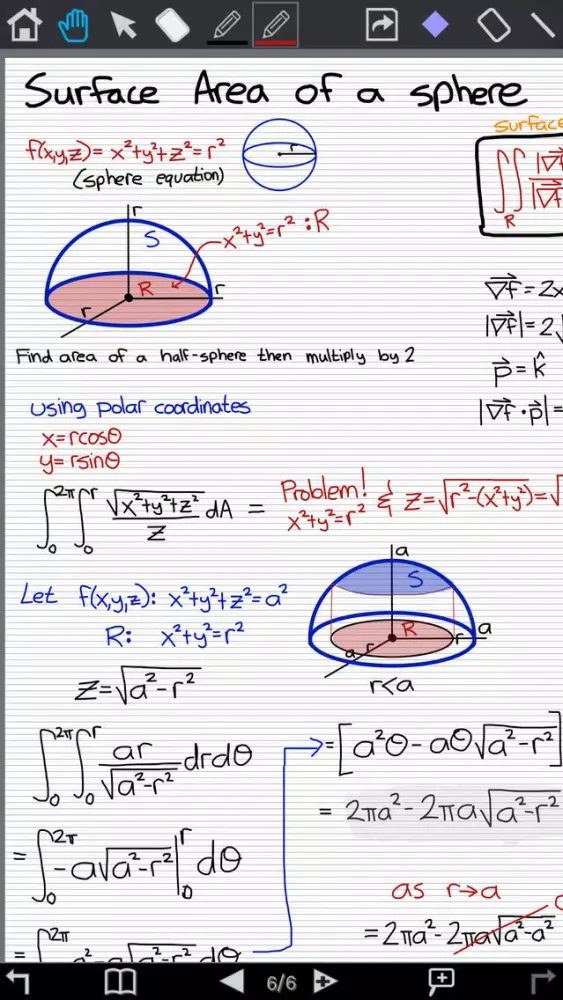 Surface Area of a sphere
f(x,y,z) = x²+y²+z²=r²
(sphere equation)
r
surface
∬ |∇f
R |∇f
r
S
x²+y²=r² : R
R
r
r
Find area of a half-sphere then multiply by 2
∇f = 2x
|∇f| = 2√
p = k̂
|∇f · p| =
using polar coordinates
x=rcosθ
y=rsinθ
∫₀^2π ∫₀^r √x²+y²+z² / z dA =
Problem!
x²+y²=r²
& z=√r²-(x²+y²) = √
Let f(x,y,z): x²+y²+z²=a²
R: x²+y²=r²
z=√a²-r²
a
S
R
a r
r
a
r<a
∫₀^2π ∫₀^r ar / √a²-r² drdθ
= ∫₀^2π -a√a²-r² |₀^r dθ
= ∫₀^2π a²-a√a²-r² dθ
= [a²θ - aθ√a²-r²]
= 2πa² - 2πa√a²-r²
as r→a
= 2πa² - 2πa√a²-a²
6/6